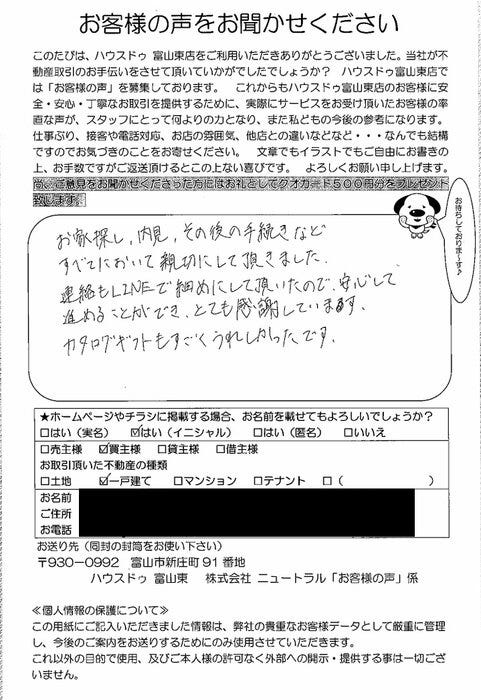 お客様の声をお聞かせください
このたびは、ハウスドゥ富山東店をご利用いただきありがとうございました。当社が不
動産取引のお手伝いをさせて頂いていかがでしたでしょうか？　ハウスドゥ富山東店で
は「お客様の声」を募集しております。　これからもハウスドゥ富山東店のお客様に安
全・安心・丁寧なお取引を提供するために、実際にサービスをお受け頂いたお客様の率
直な声が、スタッフにとって何よりの力となり、また私どもの今後の参考になります。
仕事ぶり、接客や電話対応、お店の雰囲気、他店との違いなどなど・・・なんでも結構
ですのでお気づきのことをお寄せください。　文章でもイラストでもご自由にお書きの
上、お手数ですがご返送頂けるとこの上ない喜びです。　よろしくお願い申し上げます。
尚、ご意見をお聞かせくださった方にはお礼としてクオカード５００円分をプレゼント
致します。
お待ちしておりま～す♪
お家探し、内見、その後の手続きなど
すべてにおいて親切にして頂きました。
連絡もLINEで細めにして頂いたので、安心して
進めることができ、とても感謝しています。
カタログギフトもすごくうれしかったです。
★ホームページやチラシに掲載する場合、お名前を載せてもよろしいでしょうか？
□はい（実名）　☑はい（イニシャル）　□はい（匿名）　□いいえ
□売主様　☑買主様　□貸主様　□借主様
お取引頂いた不動産の種類
□土地　☑一戸建て　□マンション　□テナント　□（　　　　　　　）
お名前
ご住所
お電話
お送り先（同封の封筒をお使い下さい）
〒930-0992　富山市新庄町９１番地
ハウスドゥ 富山東　株式会社 ニュートラル「お客様の声」係
≪個人情報の保護について≫
この用紙にご記入いただきました情報は、弊社の貴重なお客様データとして厳重に管理
し、今後のご案内をお送りするためにのみ使用させていただきます。
これ以外の目的で使用、及びご本人様の許可なく外部への開示・提供する事は一切ござ
いません。